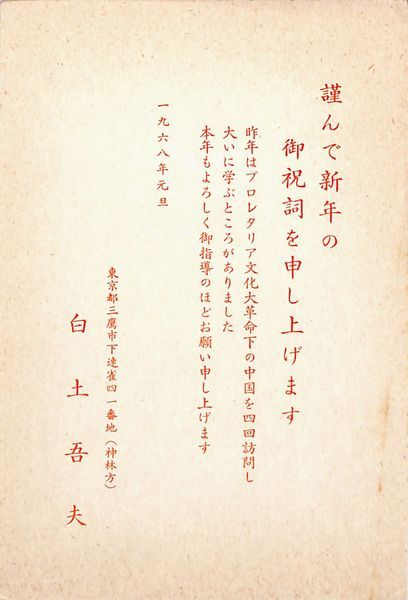 謹んで新年の
御祝詞を申し上げます
昨年はプロレタリア文化大革命下の中国を四回訪問し
大いに学ぶところがありました
本年もよろしく御指導のほどお願い申し上げます
一九六八年元旦
東京都三鷹市下連雀四一番地(神林方)
白土吾夫